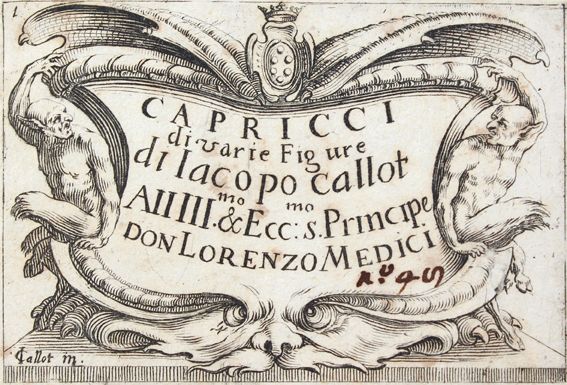 1
CAPRICCI
di varie Figure
di Iacopo Callot
All Ill.mo & Ecc:mo s. Principe
DON LORENZO MEDICI
n.º 45
Callot in.